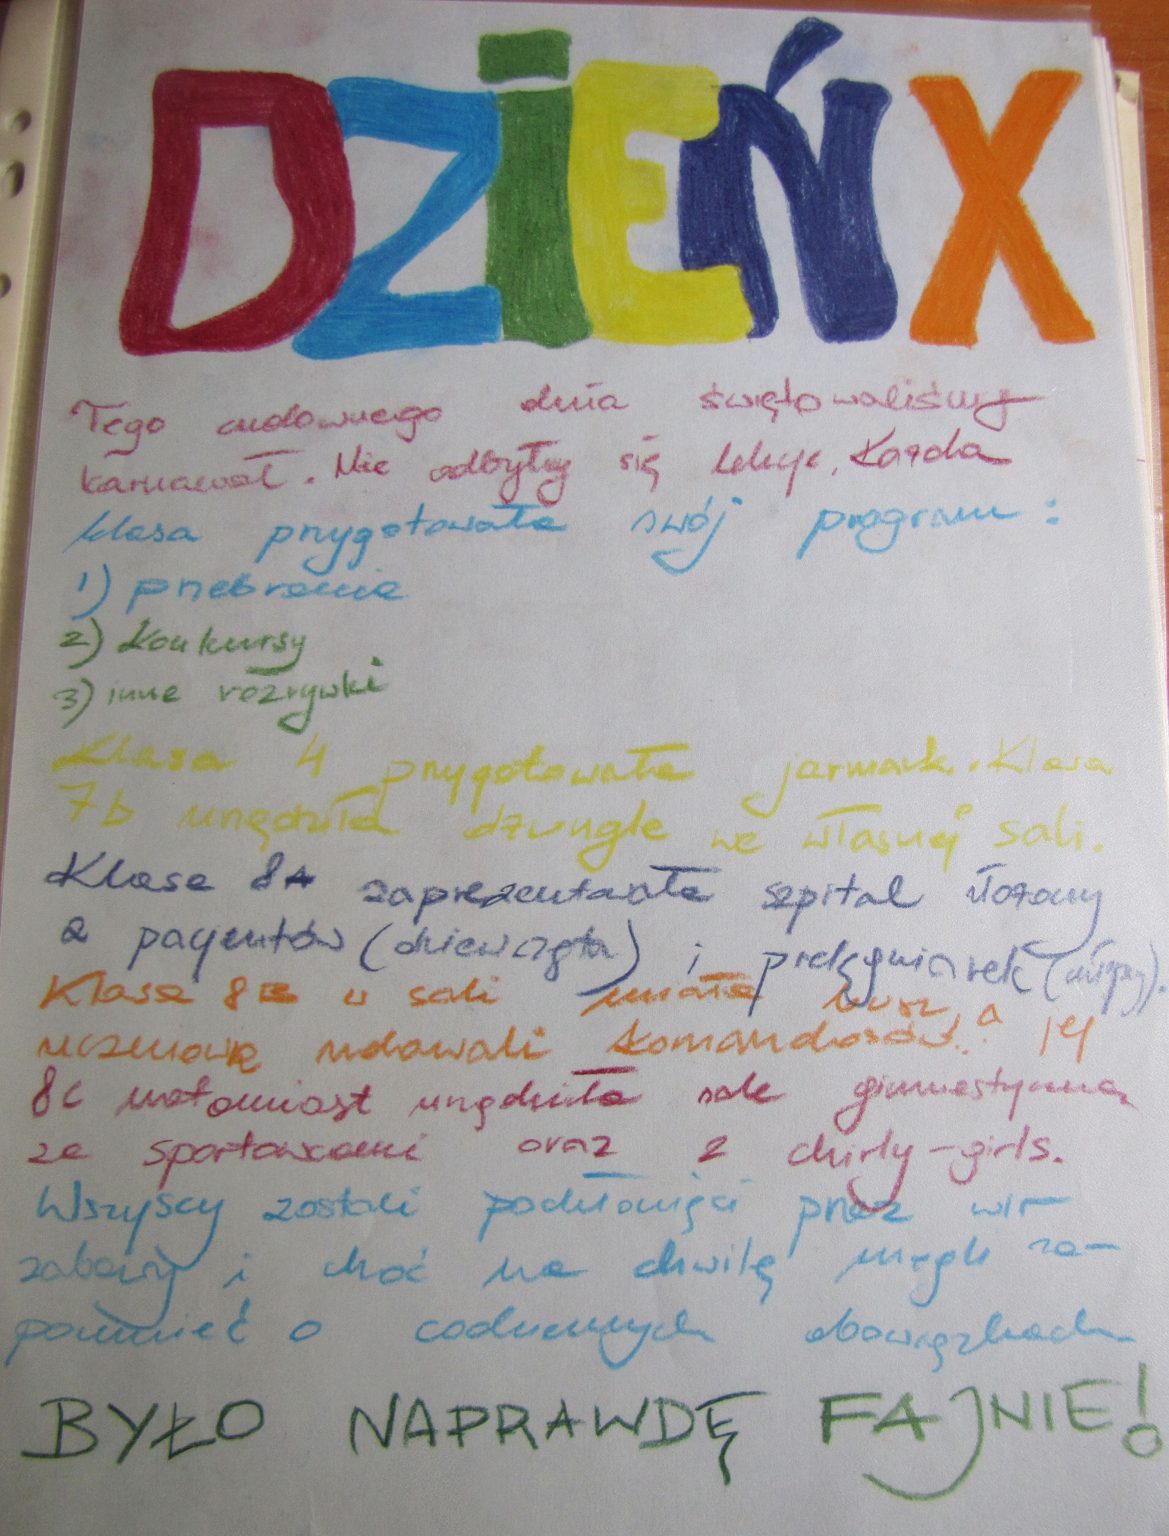 DZIEŃ X
Tego cudownego dnia świętowaliśmy
karnawał. Nie odbyły się lekcje. Każda
klasa przygotowała swój program:
1) przebranie
2) Konkursy
3) inne rozrywki
Klasa 4 przygotowała jarmark. Klasa
7b urządziła dżungle we własnej sali.
Klasa 8A zaprezentowała szpital złożony
z pacjentów (dziewczęta) i pielęgniarek (chłopcy).
Klasa 8B w sali miała busz, a
uczniowie udawali komandosów.
8C natomiast urządziła sale gimnastyczną
ze sportowcami oraz z chirly-girls.
Wszyscy zostali pochłonięci przez wir
zabawy i choć na chwilę mogli za-
pomnieć o codziennych obowiązkach
BYŁO NAPRAWDĘ FAJNIE!